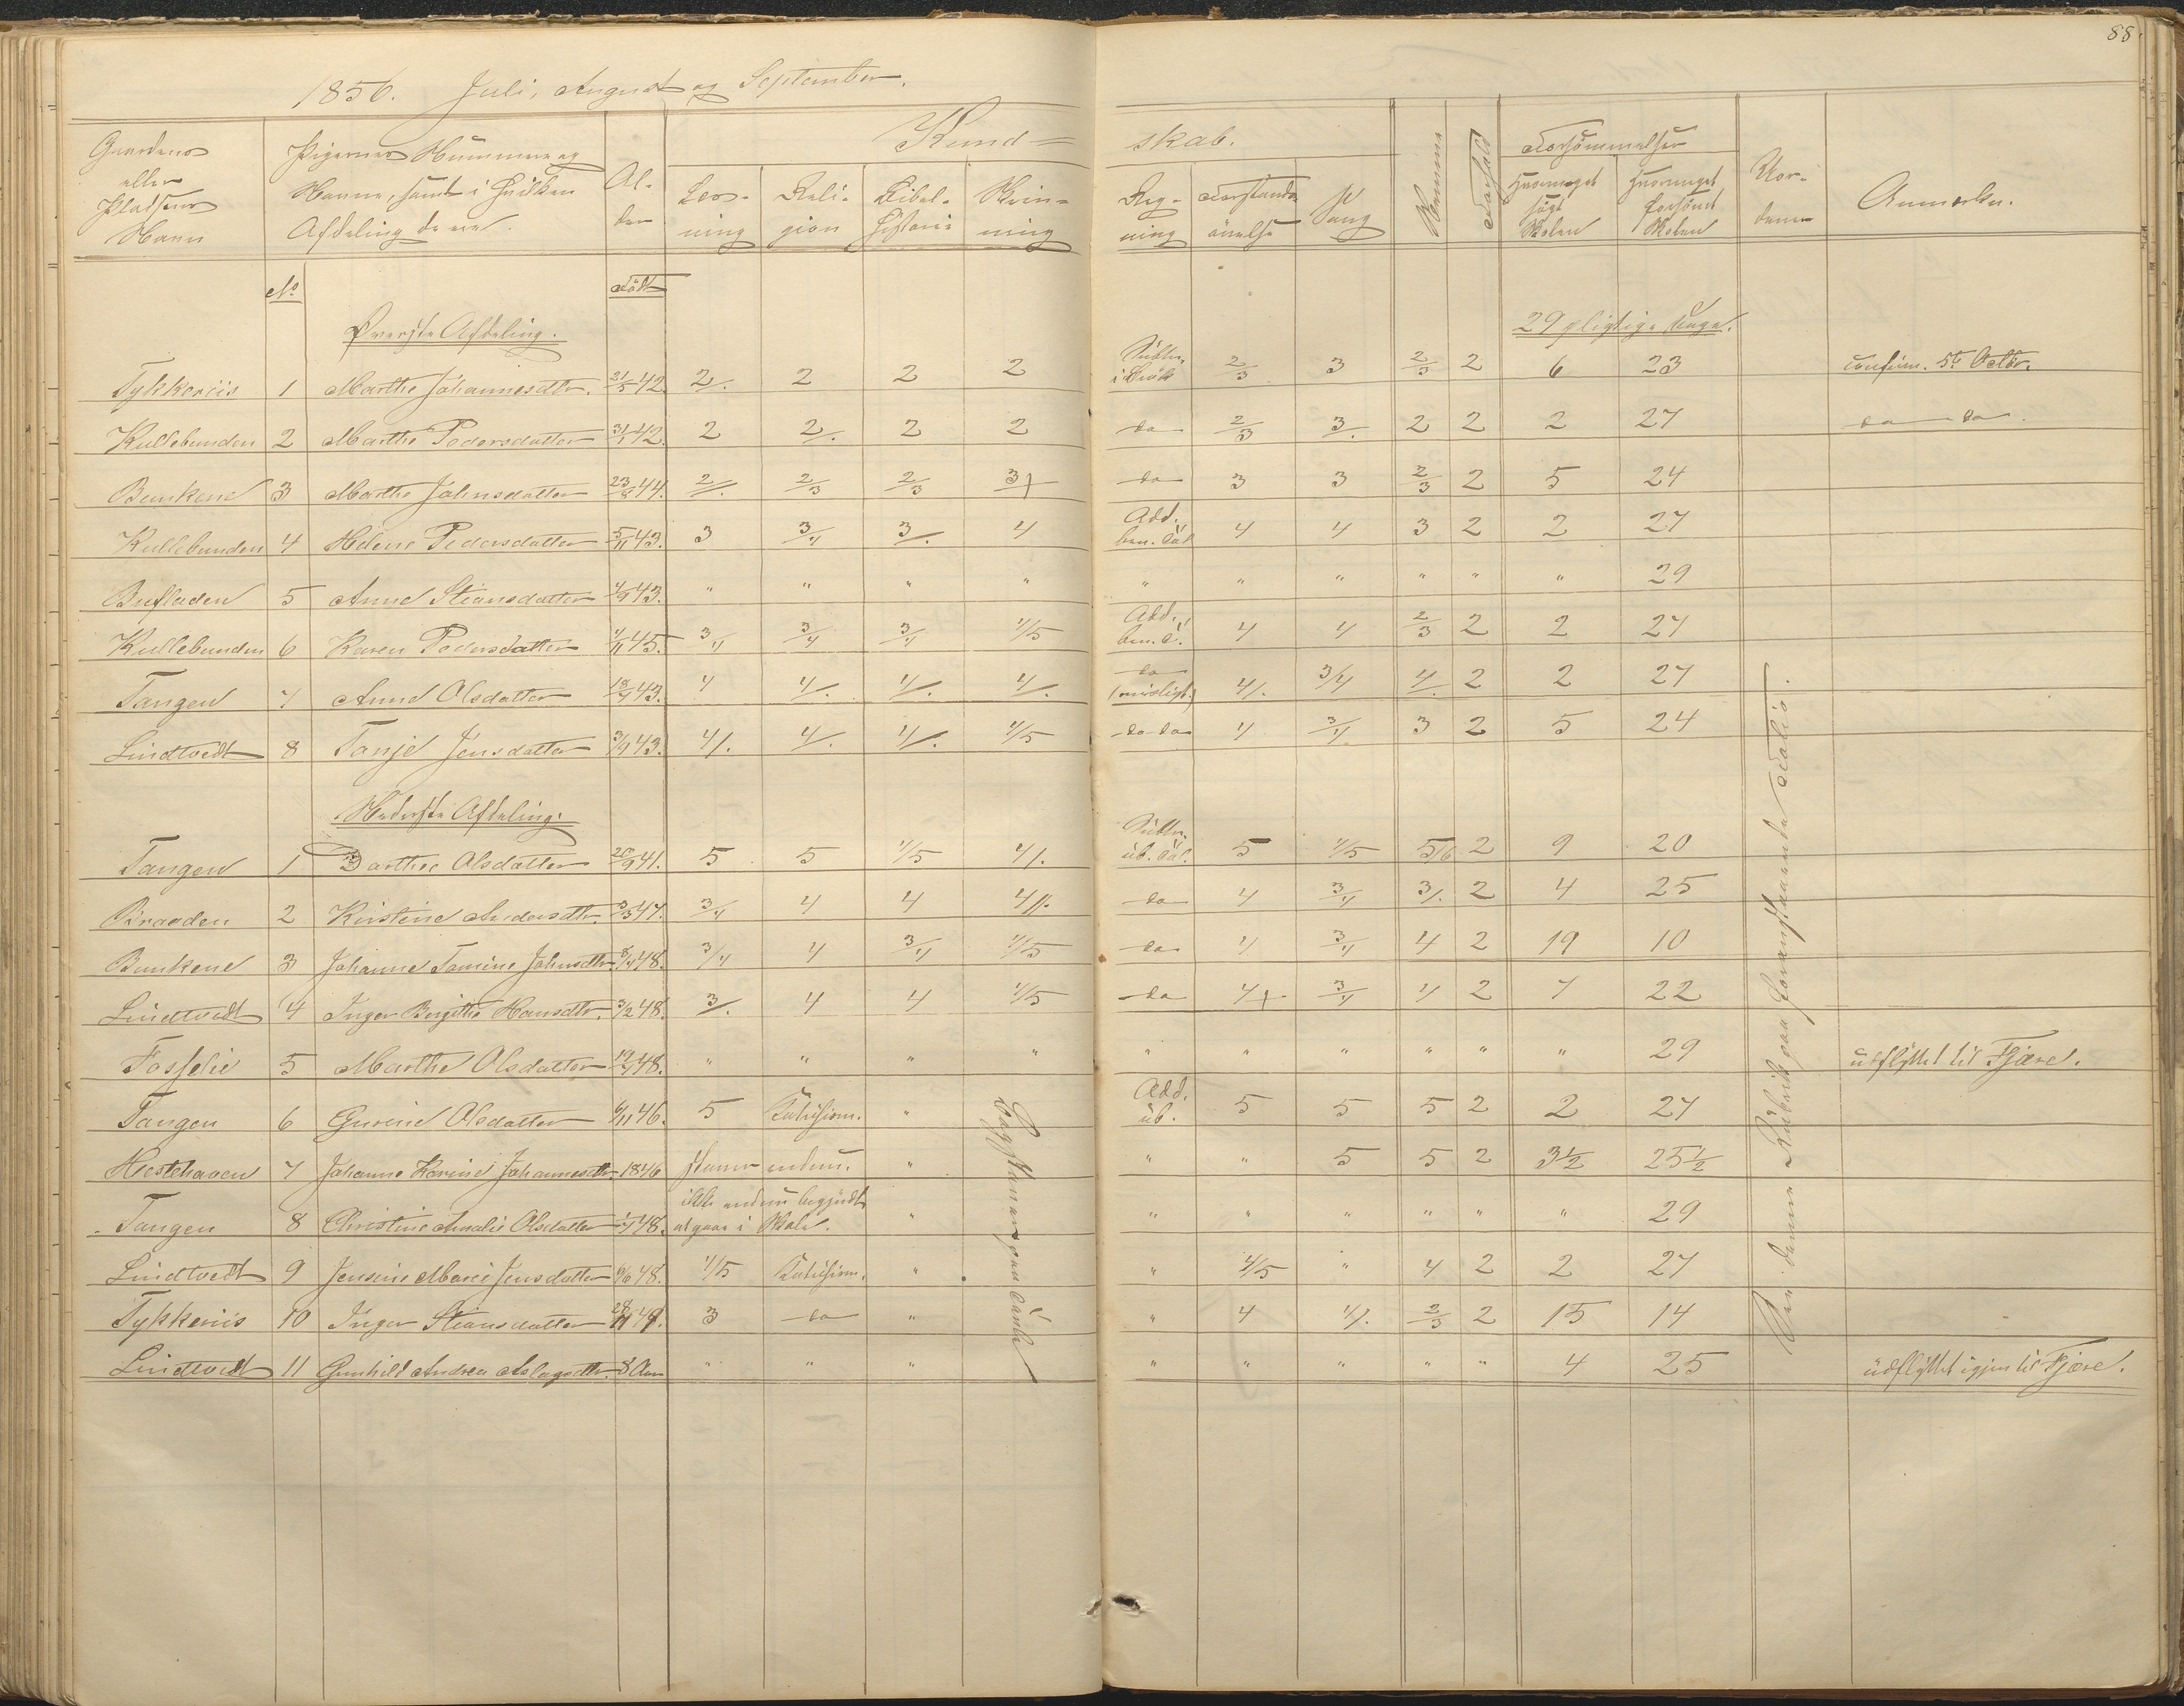 88.
1856. Juli, August og September.
Gaardens eller Pladsens Navn | Pigernes Nummere og Navne, samt i hvilken Afdeling de ere. | Al- der | Kund- skab.
Læs- ning | Reli- gion | Bibel- historie | Skriv- ning | Reg- ning | Forstands- øvelse | Sang | Nemme | Forhold | Forsømmelser | Hvormeget søgt Skolen | Hvormeget forsømt Skolen | Vor- dene | Anmærkn.
No | født
Øverste Afdeling. | 29 pligtige Dage.
Tykkeriis 1 Marthe Johannesdtr. 21/5 42. 2/. 2 2 2 Subtr. i Brøk 2/3 3 2/3 2 6 23 confirm. 5te Octbr.
Kullebunden 2 Marthe Pedersdatter 31/1 42. 2 2/. 2 2 do 2/3 3/. 2 2 2 27 do do.
Bunkene 3 Marthe Johnsdatter 23/8 44. 2//. 2/3 2/3 3+ do 3 3 2/3 2 5 24
Kullebunden 4 Helene Pedersdatter 5/11 43. 3 3/4 3/. 4 Add. ben. Tal 4 4 3 2 2 27
Bufladen 5 Anne Stiansdatter 4/9 43. " " " " " " " " " " 29
Kullebunden 6 Karen Pedersdatter 4/11 45. 3/4 3/4 3/4 4/5 Add. ben. T. 4 4 2/3 2 2 27
Tangen 7 Anne Olsdatter 18/7 43. 4 4/. 4/. 4/. do (misligt.) 4/. 3/4 4/. 2 2 27
Lindtvedt 8 Tanje Jensdatter 3/9 43. 4/. 4/. 4/. 4/5 do do 4 3/4 3 2 5 24
Nederste Afdeling.
Tangen 1 Darthee Olsdatter 20/9 41. 5 5 4/5 4/. Subtr. ub. Tal. 5 4/5 5/6 2 9 20
Braaden 2 Kirstine Andersdtr. 3/3 47. 3/4 4 4 4//. do 4 3/4 3/. 2 4 25
Bunkene 3 Johanne Tomine Johnsdtr. 5/4 48. 3/4 4 3/4 4/5 do 4 3/4 4 2 19 10
Lindtvedt 4 Inger Birgithe Hansdtr. 3/2 48. 3/. 4 4 4/5 do 4+ 3/4 4 2 7 22
Fosselie 5 Marthe Olsdatter 19/4 48. " " " " " " " " " " 29 udflyttet til Fjære.
Tangen 6 Gurine Olsdatter 6/11 46. 5 Katechism. " Add. ub. 5 5 5 2 2 27
Hestehaven 7 Johanne Karine Johannesdtr. 1846 staver endnu. " " " 5 5 2 3 1/2 25 1/2
Tangen 8 Christine Amalie Olsdatter 1/7 48. ikke endnu begyndt at gaae i Skole. " " " " " " " 29
Lindtvedt 9 Jensine Marie Jensdatter 6/6 48. 4/5 Katechism. " " 4/5 " 4 2 2 27
Tykkeriis 10 Inger Stiansdatter 28/11 49. 3 do " " 4 4/. 2/3 2 15 14
Lindtvedt 11 Gunhild Andrea Aslagsdtr. 8 Aar " " " " " " " " 4 25 udflyttet igjen til Fjære.
Bogstaver paa Tavle
denne Rubrik paa foranstaaende Folio.